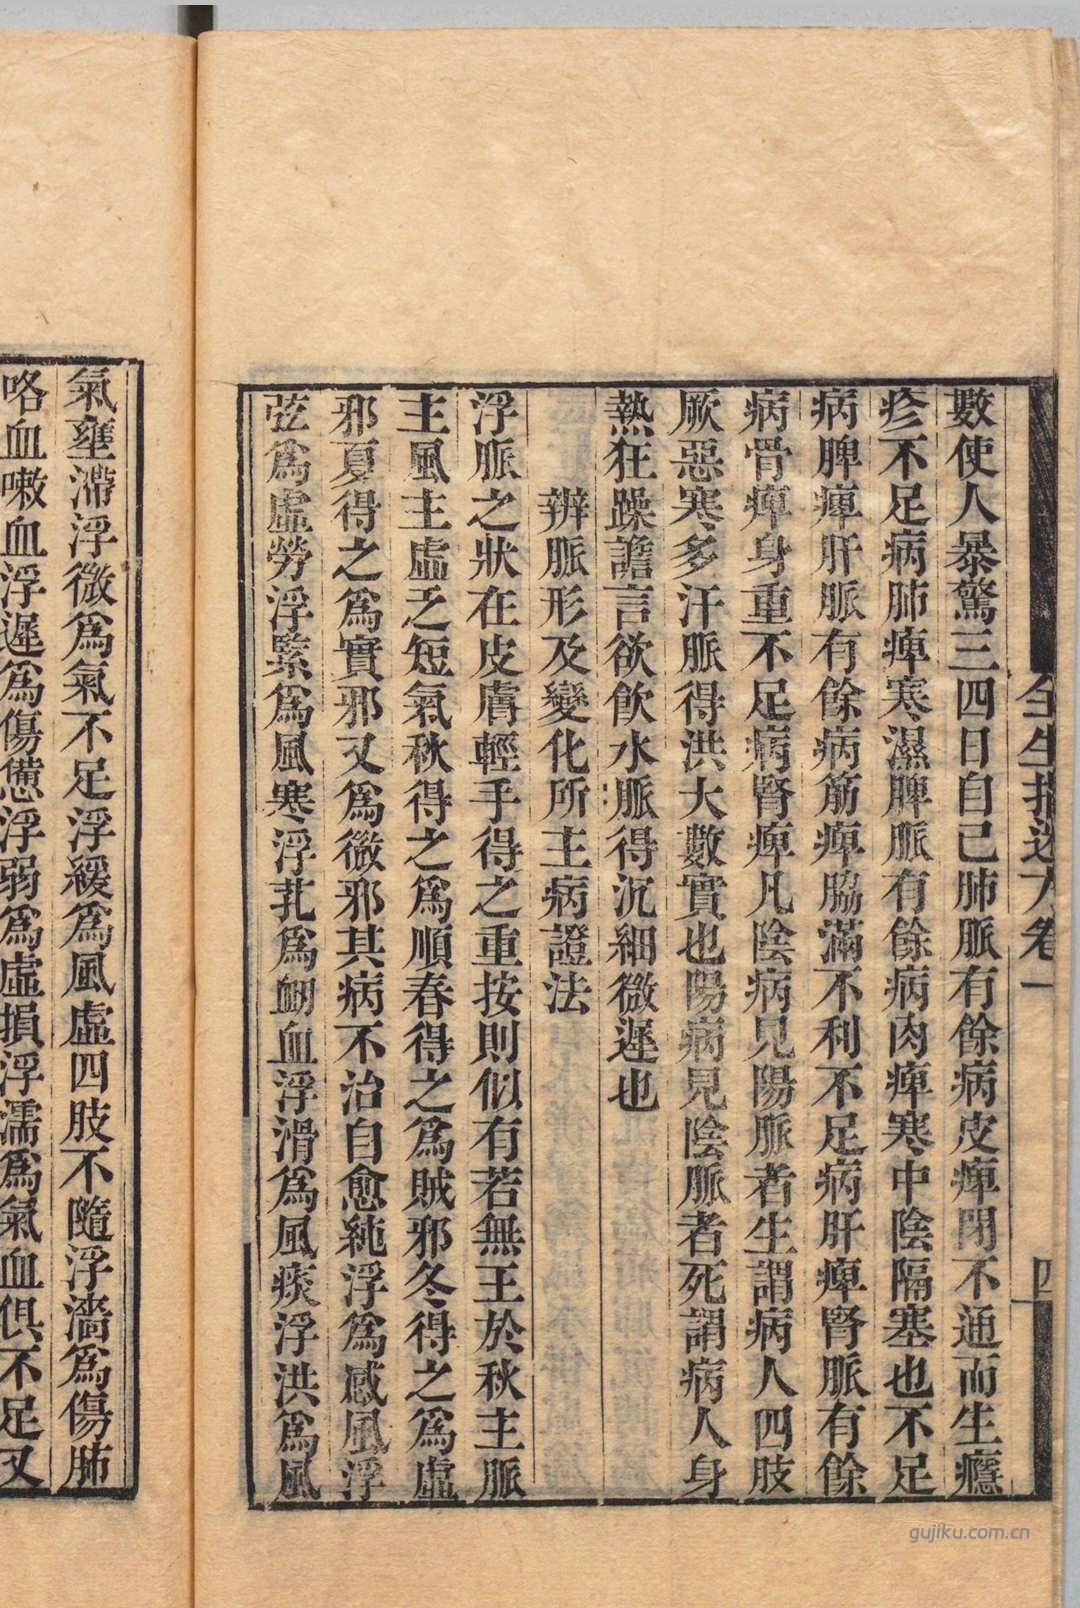 全生指迷方卷一
四
數使人暴驚三四日自已肺脈有餘病皮痺閉不通而生癮
疹不足病肺痺寒濕脾脈有餘病肉痺寒中陰隔塞也不足
病脾痺肝脈有餘病筋痺脇滿不利不足病肝痺腎脈有餘
病骨痺身重不足病腎痺凡陰病見陽脈者生謂病人四肢
厥惡寒多汗脈得洪大數實也陽病見陰脈者死謂病人身
熱狂躁譫言欲飲水脈得沉細微遲也
辨脈形及變化所主病證法
浮脈之狀在皮膚輕手得之重按則似有若無王於秋主脈
主風主虛乏短氣秋得之爲順春得之爲賊邪冬得之爲虛
邪夏得之爲實邪又爲微邪其病不治自愈純浮爲感風浮
弦爲虛勞浮緊爲風寒浮芤爲衂血浮滑爲風痰浮洪爲風
氣壅滯浮微爲氣不足浮緩爲風虛四肢不隨浮濇爲傷肺
咯血嗽血浮遲爲傷憊浮弱爲虛損浮濡爲氣血俱不足又
gujiku.com.cn